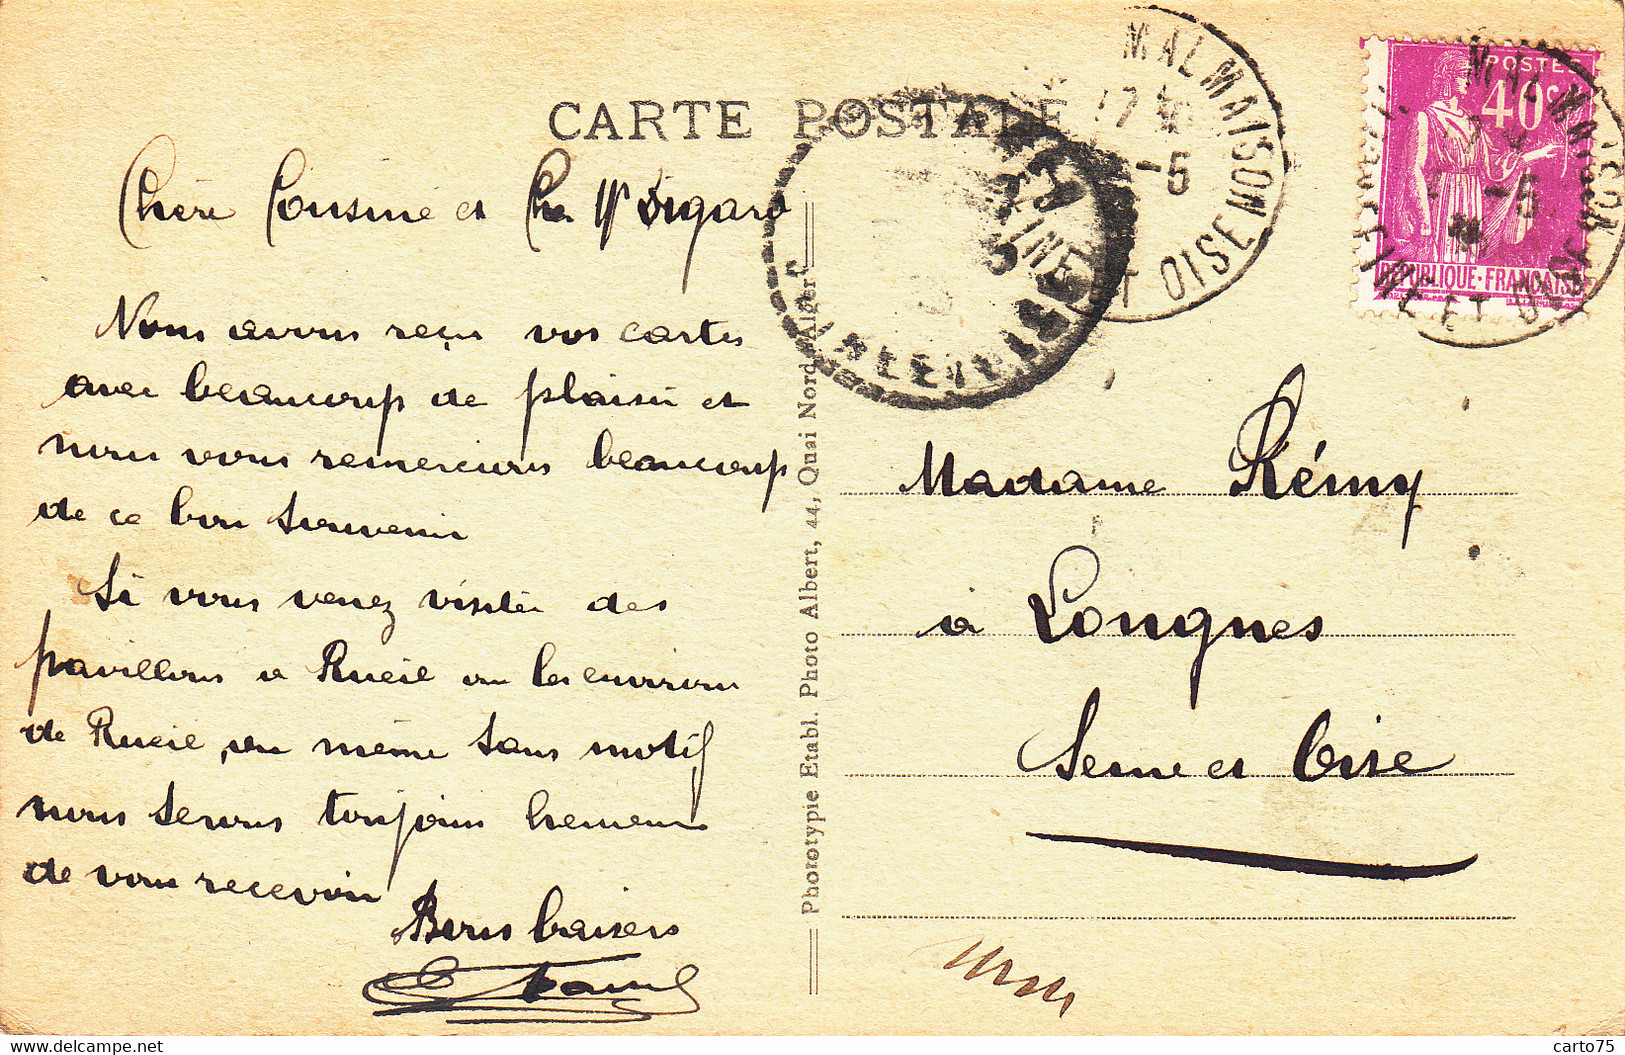 CARTE POSTALE
MALMAISON
17
-5
SEINE ET OISE
POSTES
40c
RÉPUBLIQUE-FRANÇAISE
Chère Cousine et Digard
Nous avons reçu vos cartes
avec beaucoup de plaisir et
nous vous remercions beaucoup
de ce bon souvenir
Si vous venez visiter des
pavillons a Rueil ou les environs
de Rueil, ou même sans motif
nous serons toujours heureux
de vous recevoir
Bons baisers
Phototypie Etabl. Photo Albert, 44, Quai Nord, Alger
Madame Rémy
à Longnes
Seine et Oise
www.delcampe.net
carto75